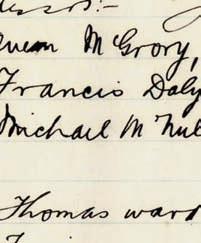 McGrory,
Francis Daly
Michael McNul
Thomas ward